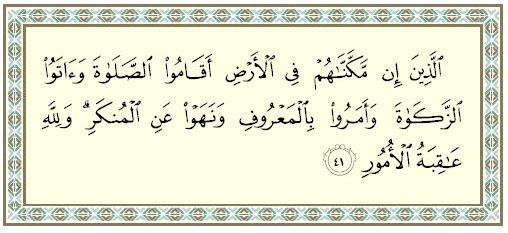 ٱلَّذِينَ إِن مَّكَّنَّـٰهُمۡ فِى ٱلۡأَرۡضِ أَقَامُوا۟ ٱلصَّلَوٰةَ وَءَاتَوُا۟
ٱلزَّكَوٰةَ وَأَمَرُوا۟ بِٱلۡمَعۡرُوفِ وَنَهَوۡا۟ عَنِ ٱلۡمُنكَرِ‌ۗ وَلِلَّهِ
عَـٰقِبَةُ ٱلۡأُمُورِ ﴿٤١﴾